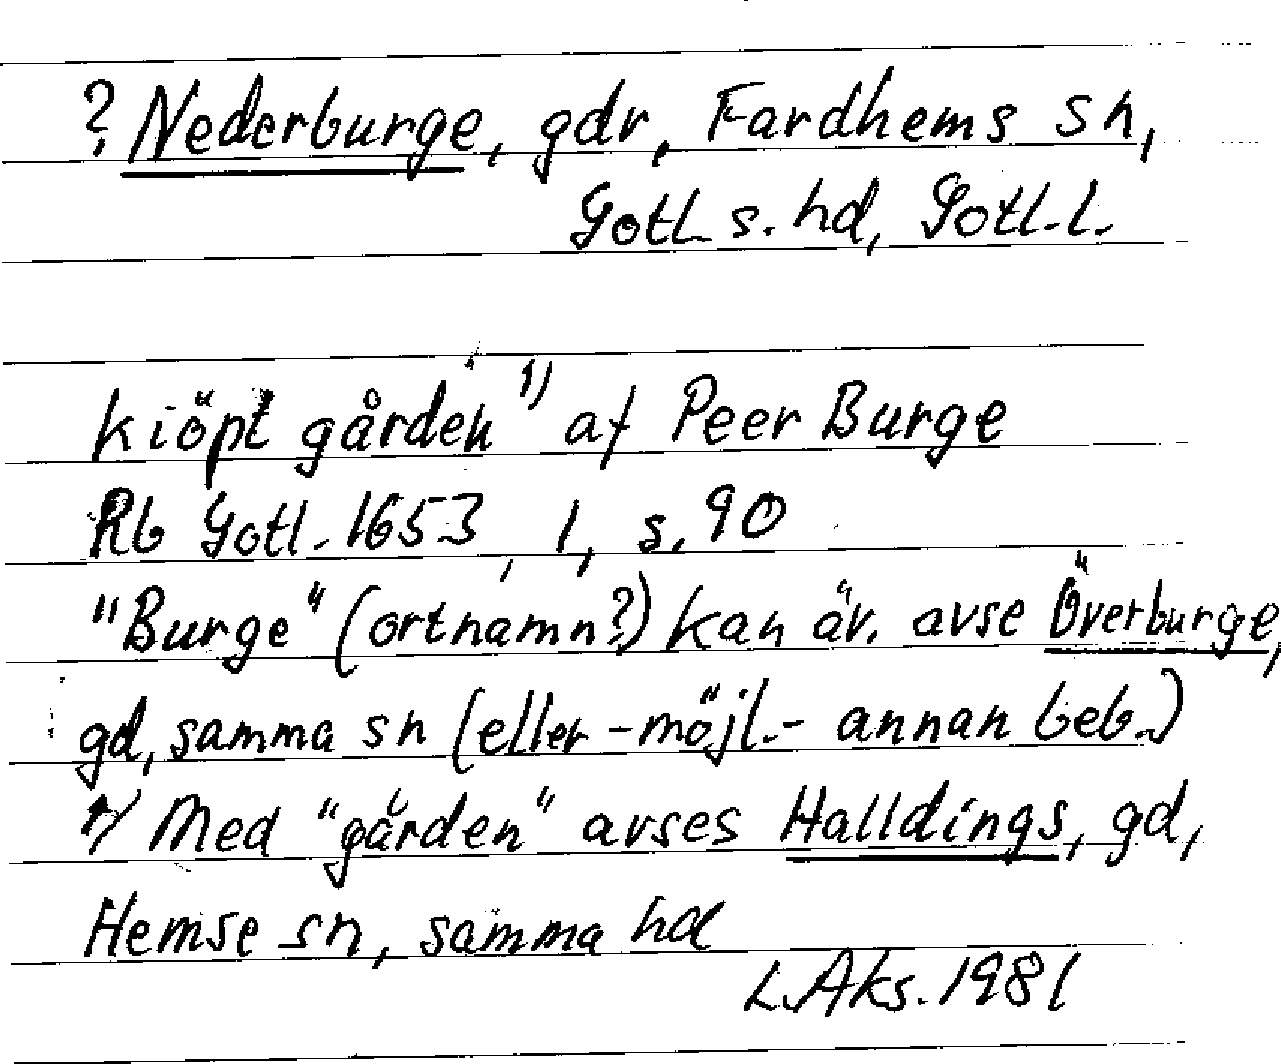 ? Nederburge, gdr, Fardhems sn,
Gotl. s. hd, Gotl. l.
kiöpt gården 1) af Peer Burge
Rb Gotl. 1653, 1, s. 90
"Burge" (ortnamn?) kan äv. avse Överburge,
gd, samma sn (eller - möjl. - annan beb.)
1) Med "gården" avses Halldings, gd,
Hemse sn, samma hd
L. Aks. 1981